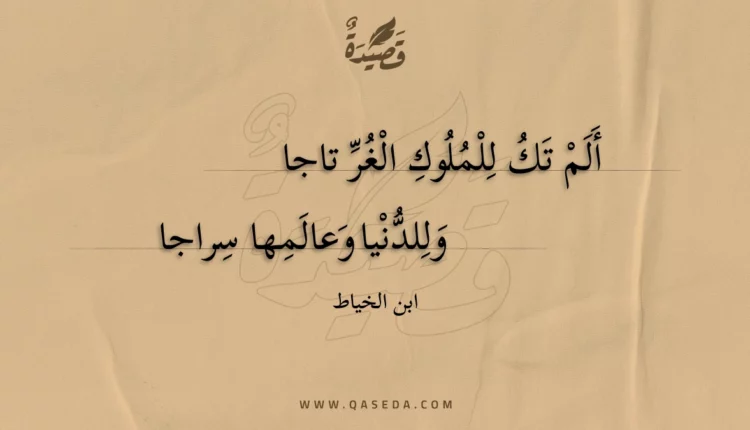 قَصِيدَةٌ
أَلَمْ تَكُ لِلْمُلُوكِ الْغُرِّ تاجا
وَلِلدُّنْيا وَعالَمِها سِراجا
ابن الخياط
WWW.QASEDA.COM